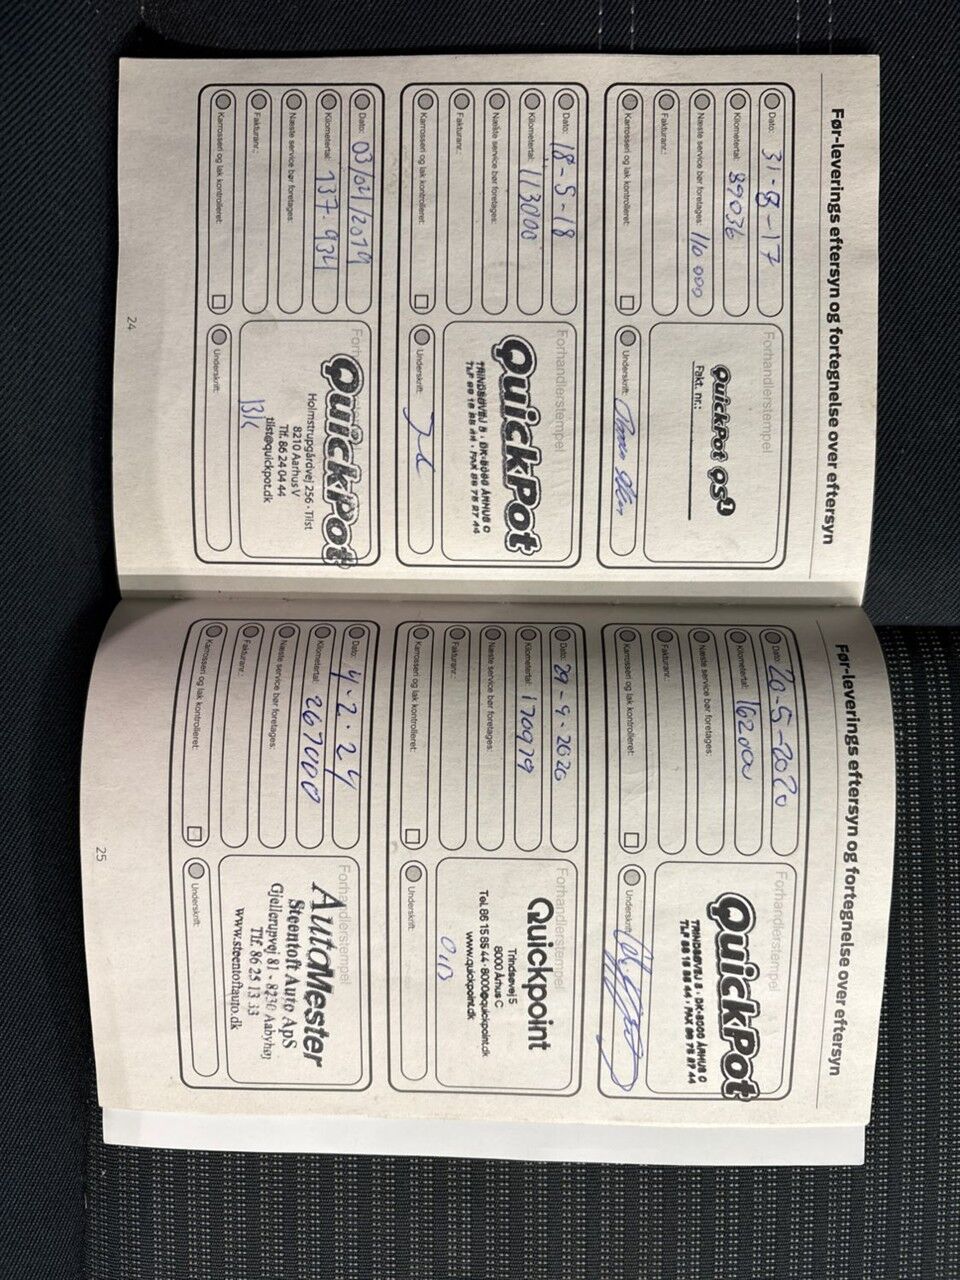 Før-leverings eftersyn og fortegnelse over eftersyn
Dato: 31-8-17
Kilometertal: 89036
Næste service bør foretages: 110 000
Fakturanr.:
Karrosseri og lak kontrolleret:
Forhandlerstempel
QuickPot 95¹
Fakt. nr.:
Underskrift:
Dato: 18-5-18
Kilometertal: 113000
Næste service bør foretages:
Fakturanr.:
Karrosseri og lak kontrolleret:
Forhandlerstempel
QuickPot
TRINDSØVEJ 5 · DK-8000 ÅRHUS C
TLF 86 15 85 44 · FAX 86 76 27 44
Underskrift:
Dato: 03/04/2019
Kilometertal: 137.934
Næste service bør foretages:
Fakturanr.:
Karrosseri og lak kontrolleret:
QuickPot
Holmstrupgårdvej 256 · Tilst
8210 Aarhus V
Tlf. 86 24 04 44
tilst@quickpot.dk
Underskrift:
24
Før-leverings eftersyn og fortegnelse over eftersyn
Dato: 20-5-2020
Kilometertal: 162000
Næste service bør foretages:
Fakturanr.:
Karrosseri og lak kontrolleret:
Forhandlerstempel
QuickPot
TRINDSØVEJ 5 · DK-8000 ÅRHUS C
TLF 86 15 85 44 · FAX 86 76 27 44
Underskrift:
Dato: 29-9-2020
Kilometertal: 170979
Næste service bør foretages:
Fakturanr.:
Karrosseri og lak kontrolleret:
Forhandlerstempel
Quickpoint
Trindsøvej 5
8000 Århus C
Tel. 86 15 85 44 · 8000@quickpoint.dk
www.quickpoint.dk
Underskrift:
Dato: 4.2.24
Kilometertal: 267000
Næste service bør foretages:
Fakturanr.:
Karrosseri og lak kontrolleret:
Forhandlerstempel
AutoMester
Steentoft Auto ApS
Gjellerupvej 81 - 8230 Aabyhøj
Tlf. 86 25 13 33
www.steentoftauto.dk
Underskrift:
25